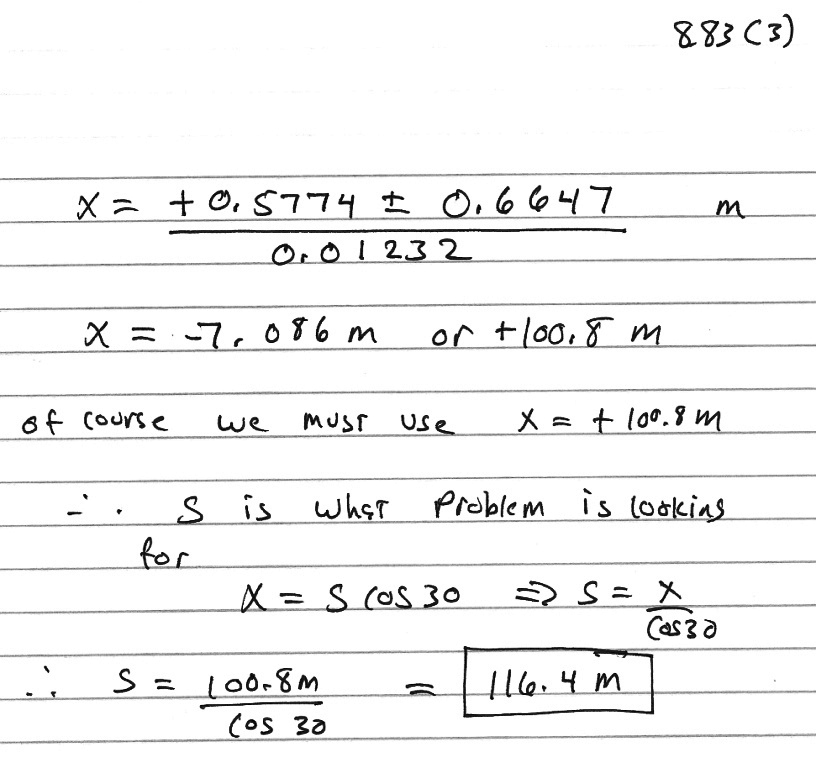 883(3)
x = +0.5774 ± 0.6647 m
0.01232
x = -7.086 m or +100.8 m
of course we must use x = +100.8 m
∴ S is what problem is looking
for
x = S cos 30 ⇒ S = x
cos 30
∴ S = 100.8m = 116.4 m
cos 30